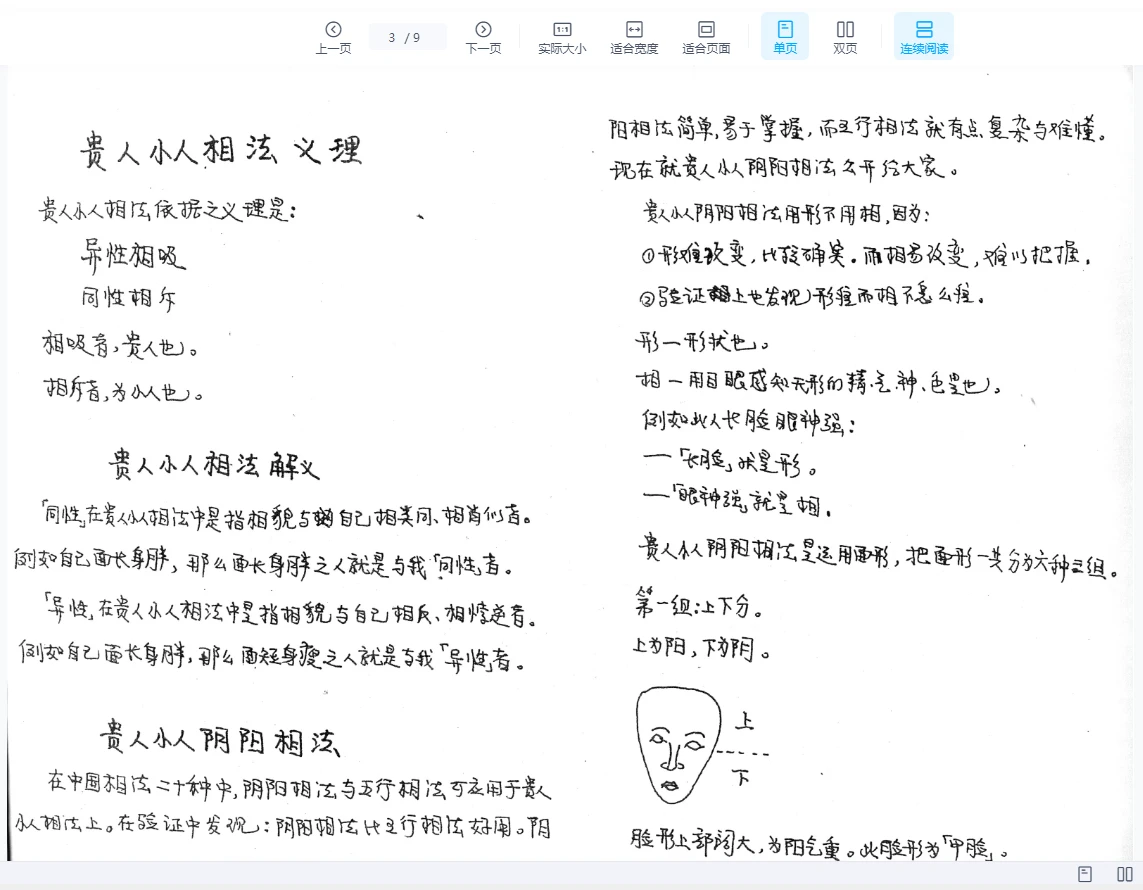 上一页
3 / 9
下一页
1:1
实际大小
适合宽度
适合页面
单页
双页
连续阅读
贵人小人相法义理
贵人小人相法依据之义理是：
异性相吸
同性相斥
相吸者，贵人也。
相斥者，为小人也。
贵人小人相法解义
「同性」在贵人小人相法中是指相貌与自己相类同、相肖似者。
例如自己面长身胖，那么面长身胖之人就是与我「同性」者。
「异性」在贵人小人相法中是指相貌与自己相反、相悖逆者。
例如自己面长身胖，那么面短身瘦之人就是与我「异性」者。
贵人小人阴阳相法
在中国相法二十种中，阴阳相法与五行相法可应用于贵人
小人相法上。在验证中发现：阴阳相法比五行相法好用。阴
阳相法简单，易于掌握，而五行相法就有点复杂与难懂。
现在就贵人小人阴阳相法公开给大家。
贵人小人阴阳相法用形不用相，因为：
①形难改变，比较确实。而相易改变，难以把握。
②验证上也发现形准而相不怎么准。
形一形状也。
相一用目眼感知无形的精、气、神、色是也。
例如此人长脸眼神强：
一「长脸」就是形。
一「眼神强」就是相。
贵人小人阴阳相法是运用面形，把面形一共分为六种三组。
第一组：上下分。
上为阳，下为阴。
上
下
脸形上部阔大，为阳气重。此脸形为「甲脸」。